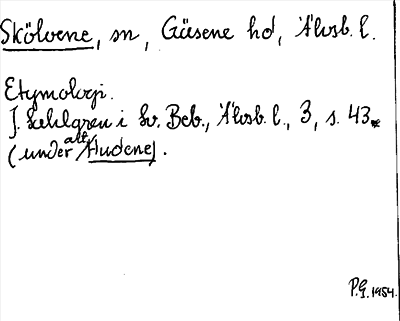 Skölvene, sn, Gäsene hd, Älvsb. l.
Etymologi.
J. Sahlgren i Sv. Beb., Älvsb. l., 3, s. 43
(under att. Hudene).
P.G. 1954.